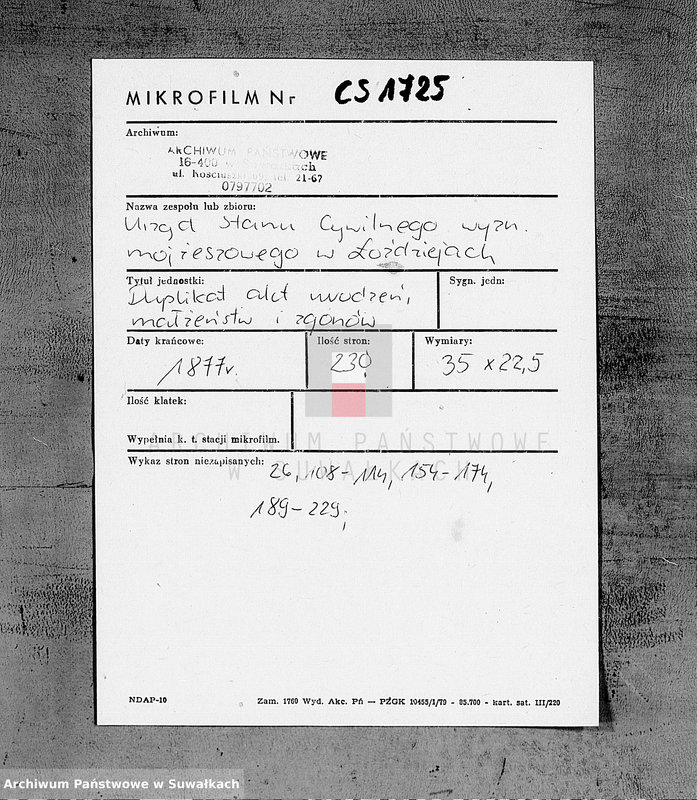 MIKROFILM Nr CS 1725
Archiwum:
ARCHIWUM PAŃSTWOWE
16-400 w Suwałkach
ul. Kościuszki 69, tel. 21-67
0797702
Nazwa zespołu lub zbioru:
Urząd Stanu Cywilnego wyzn.
mojżeszowego w Łoździejach
Tytuł jednostki:
Duplikat akt urodzeń,
małżeństw i zgonów
Sygn. jedn:
Daty krańcowe:
1877r.
Ilość stron:
230
Wymiary:
35 x 22,5
Ilość klatek:
Wypełnia k. t. stacji mikrofilm.
ARCHIWUM PAŃSTWOWE
W SUWAŁKACH
Wykaz stron niezapisanych:
26, 108-114, 154-174,
189-229;
NDAP-10
Zam. 1760 Wyd. Akc. Pń — PZGK 10455/1/79 - 85.700 - kart. sat. III/220
Archiwum Państwowe w Suwałkach